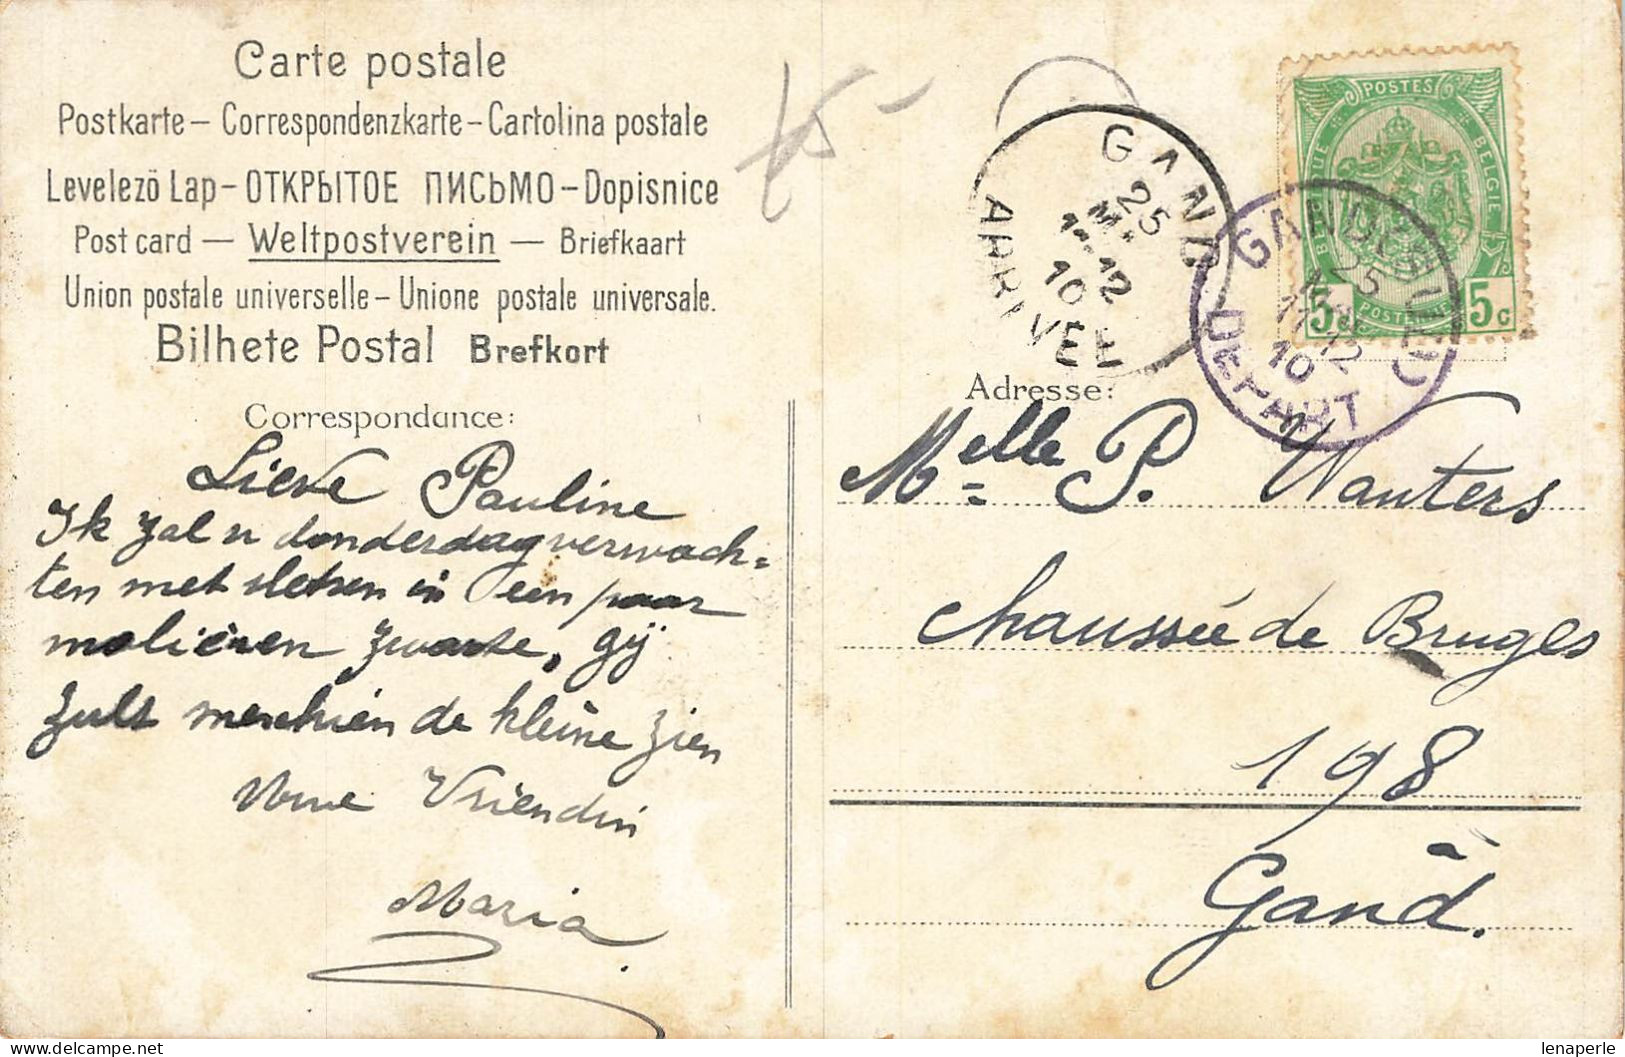 Carte postale
Postkarte – Correspondenzkarte – Cartolina postale
Levelező Lap – ОТКРЫТОЕ ПИСЬМО – Dopisnice
Post card — Weltpostverein — Briefkaart
Union postale universelle – Unione postale universale.
Bilhete Postal Brefkort
Correspondance:
Lieve Pauline
Ik zal u donderdag verwach=
ten met in een paar
molièren zwarte, gij
zult meschien de kleine zien
Uwe Vriendin
Maria
15 -
GAND
25
11-12
10
ARRIVEE
GAND
25
11-12
10
DEPART
POSTES
BELGIQUE BELGIE
POSTERIJEN
5c 5c
Adresse:
Melle P. Wauters
Chaussée de Bruges
198
Gand.
lenaperle